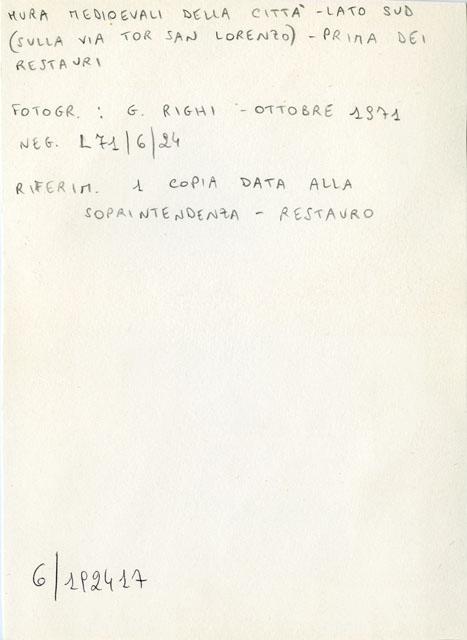 MURA MEDIOEVALI DELLA CITTÀ - LATO SUD
(SULLA VIA TOR SAN LORENZO) - PRIMA DEI
RESTAURI
FOTOGR. : G. RIGHI - OTTOBRE 1971
NEG. L71/6/24
RIFERIM. 1 COPIA DATA ALLA
SOPRINTENDENZA - RESTAURO
6/192417